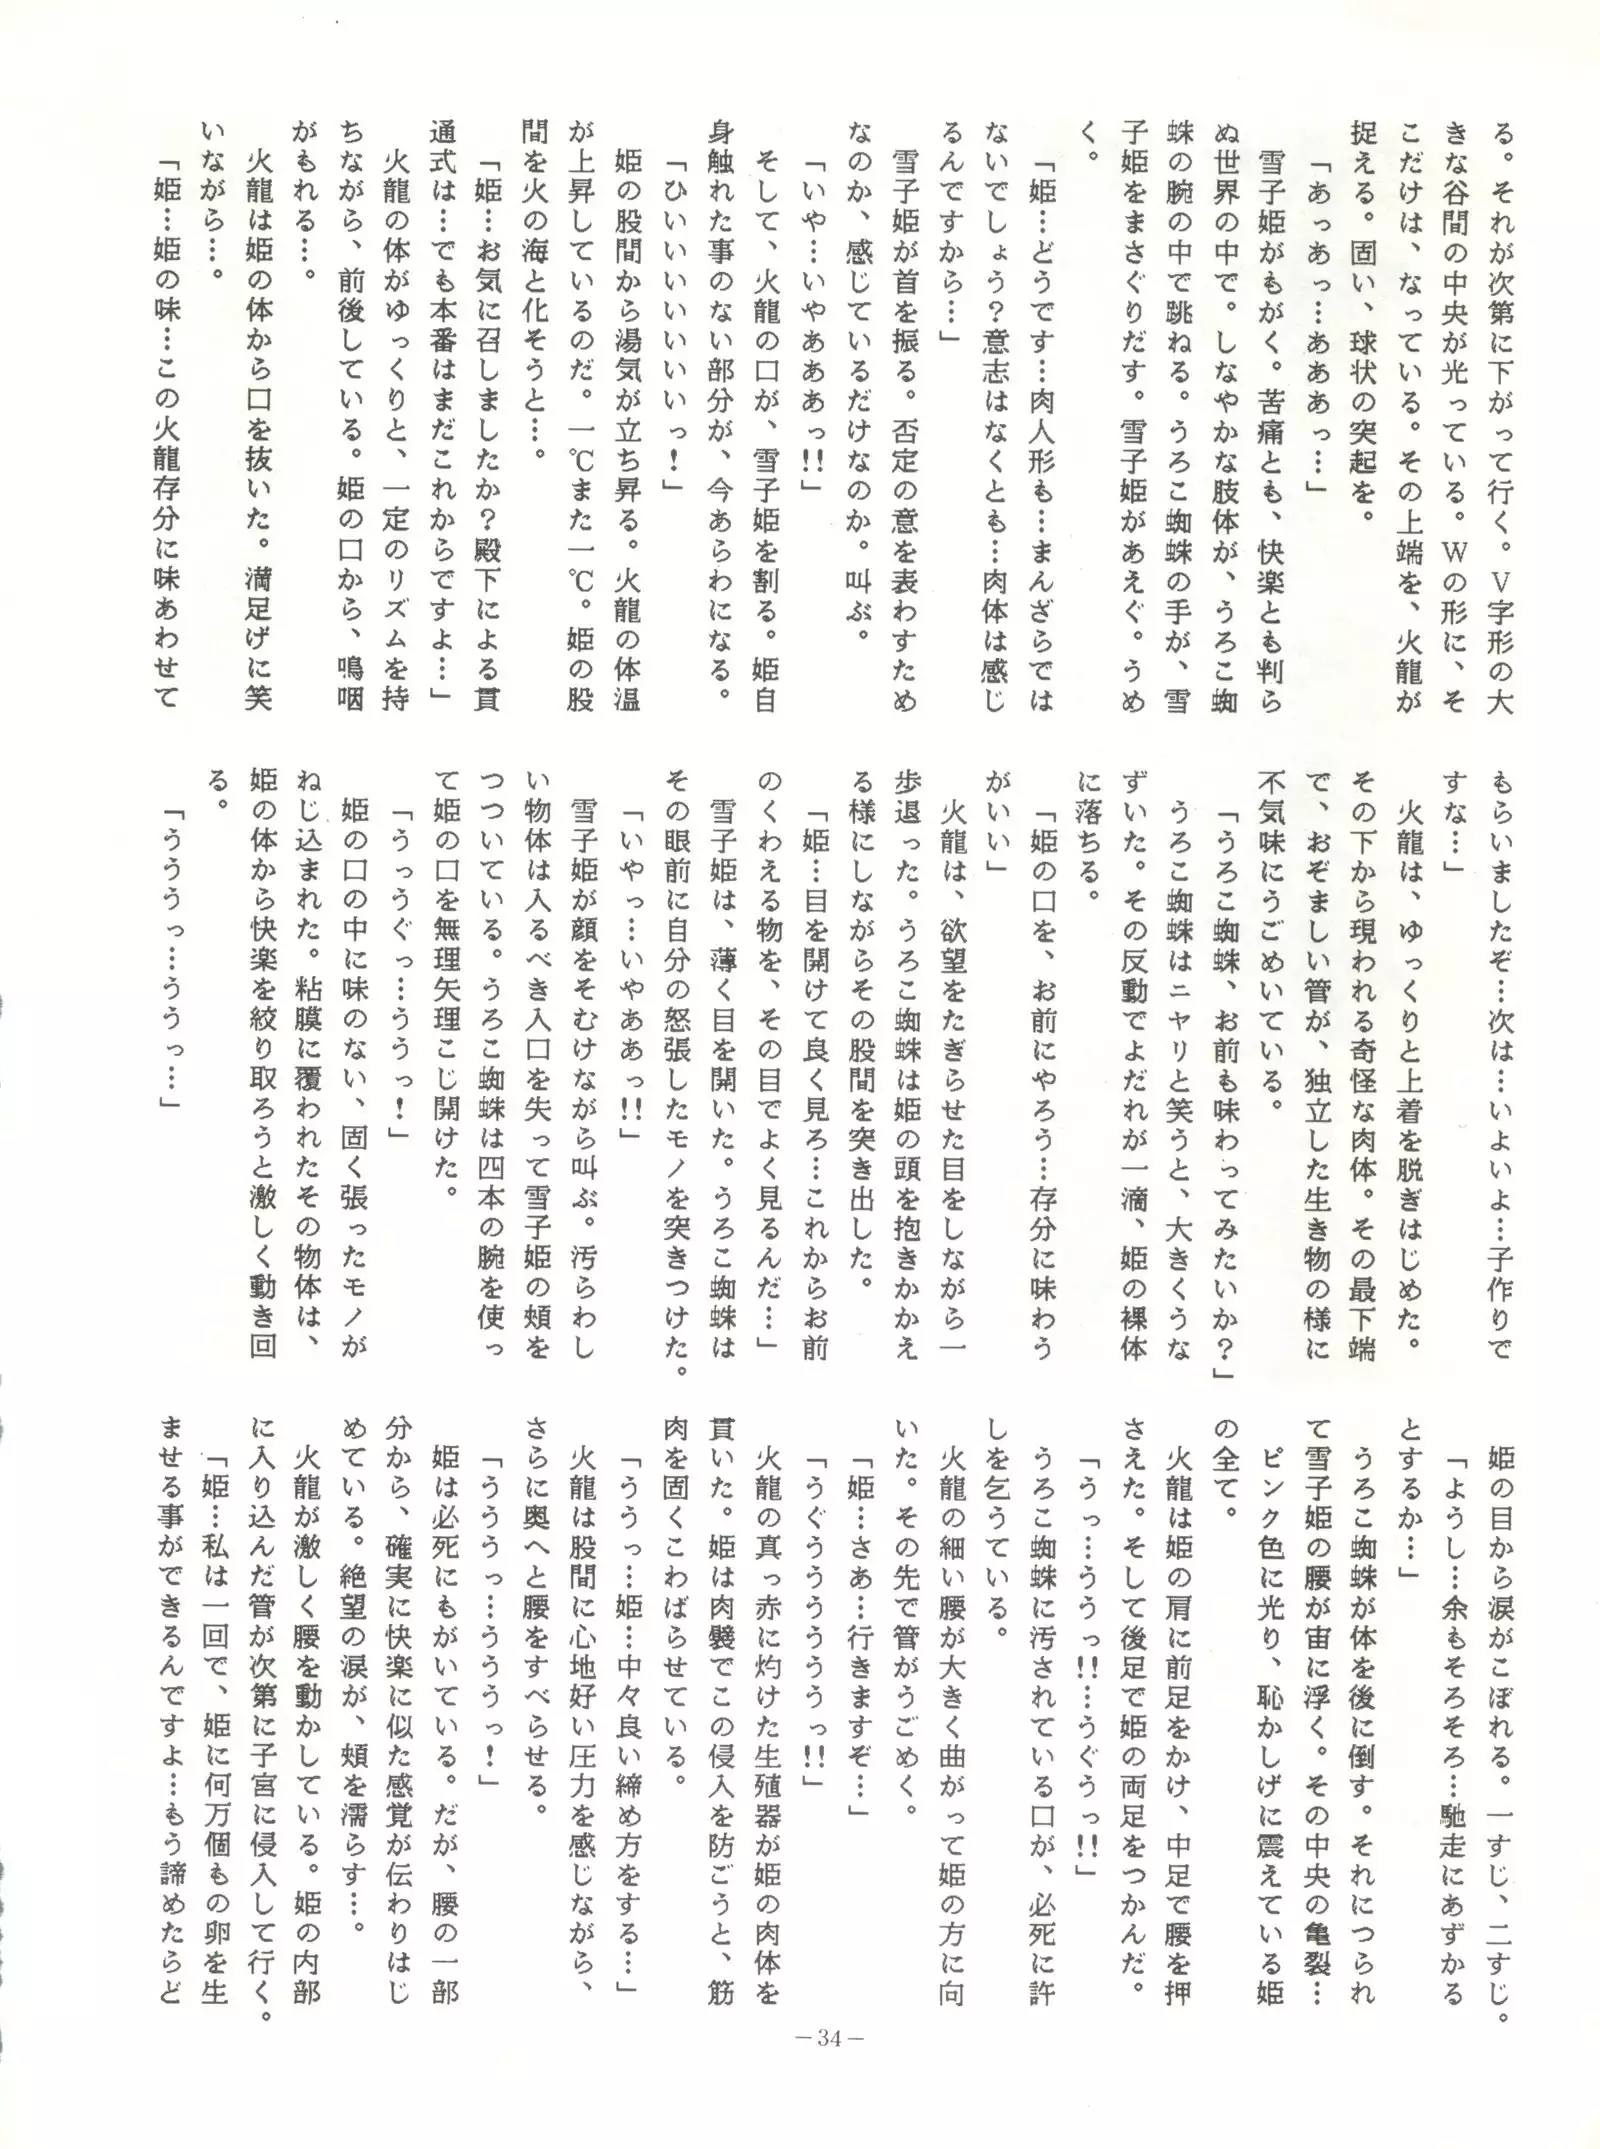 る。それが次第に下がって行く。Ｖ字形の大
きな谷間の中央が光っている。Ｗの形に、そ
こだけは、なっている。その上端を、火龍が
捉える。固い、球状の突起を。
「あっあっ…あああっ…」
雪子姫がもがく。苦痛とも、快楽とも判ら
ぬ世界の中で。しなやかな肢体が、うろこ蜘
蛛の腕の中で跳ねる。うろこ蜘蛛の手が、雪
子姫をまさぐりだす。雪子姫があえぐ。うめ
く。
「姫…どうです…肉人形も…まんざらでは
ないでしょう？意志はなくとも…肉体は感じ
るんですから…」
雪子姫が首を振る。否定の意を表わすため
なのか、感じているだけなのか。叫ぶ。
「いや…いやあああっ!!」
そして、火龍の口が、雪子姫を割る。姫自
身触れた事のない部分が、今あらわになる。
「ひいいいいいいっ！」
姫の股間から湯気が立ち昇る。火龍の体温
が上昇しているのだ。一℃また一℃。姫の股
間を火の海と化そうと…。
「姫…お気に召しましたか？殿下による貫
通式は…でも本番はまだこれからですよ…」
火龍の体がゆっくりと、一定のリズムを持
ちながら、前後している。姫の口から、鳴咽
がもれる…。
火龍は姫の体から口を抜いた。満足げに笑
いながら…。
「姫…姫の味…この火龍存分に味あわせて
もらいましたぞ…次は…いよいよ…子作りで
すな…」
火龍は、ゆっくりと上着を脱ぎはじめた。
その下から現われる奇怪な肉体。その最下端
で、おぞましい管が、独立した生き物の様に
不気味にうごめいている。
「うろこ蜘蛛、お前も味わってみたいか？」
うろこ蜘蛛はニヤリと笑うと、大きくうな
ずいた。その反動でよだれが一滴、姫の裸体
に落ちる。
「姫の口を、お前にやろう…存分に味わう
がいい」
火龍は、欲望をたぎらせた目をしながら一
歩退った。うろこ蜘蛛は姫の頭を抱きかかえ
る様にしながらその股間を突き出した。
「姫…目を開けて良く見ろ…これからお前
のくわえる物を、その目でよく見るんだ…」
雪子姫は、薄く目を開いた。うろこ蜘蛛は
その眼前に自分の怒張したモノを突きつけた。
「いやっ…いやああっ!!」
雪子姫が顔をそむけながら叫ぶ。汚らわし
い物体は入るべき入口を失って雪子姫の頬を
つついている。うろこ蜘蛛は四本の腕を使っ
て姫の口を無理矢理こじ開けた。
「うっうぐっ…ううっ！」
姫の口の中に味のない、固く張ったモノが
ねじ込まれた。粘膜に覆われたその物体は、
姫の体から快楽を絞り取ろうと激しく動き回
る。
「うううっ…ううっ…」
姫の目から涙がこぼれる。一すじ、二すじ。
「ようし…余もそろそろ…馳走にあずかる
とするか…」
うろこ蜘蛛が体を後に倒す。それにつられ
て雪子姫の腰が宙に浮く。その中央の亀裂…
ピンク色に光り、恥かしげに震えている姫
の全て。
火龍は姫の肩に前足をかけ、中足で腰を押
さえた。そして後足で姫の両足をつかんだ。
「うっ…ううっ!!…うぐうっ!!」
うろこ蜘蛛に汚されている口が、必死に許
しを乞うている。
火龍の細い腰が大きく曲がって姫の方に向
いた。その先で管がうごめく。
「姫…さあ…行きますぞ…」
「うぐうううううっ!!」
火龍の真っ赤に灼けた生殖器が姫の肉体を
貫いた。姫は肉襞でこの侵入を防ごうと、筋
肉を固くこわばらせている。
「ううっ…姫…中々良い締め方をする…」
火龍は股間に心地好い圧力を感じながら、
さらに奥へと腰をすべらせる。
「うううっ…うううっ！」
姫は必死にもがいている。だが、腰の一部
分から、確実に快楽に似た感覚が伝わりはじ
めている。絶望の涙が、頬を濡らす…。
火龍が激しく腰を動かしている。姫の内部
に入り込んだ管が次第に子宮に侵入して行く。
「姫…私は一回で、姫に何万個もの卵を生
ませる事ができるんですよ…もう諦めたらど
－34－